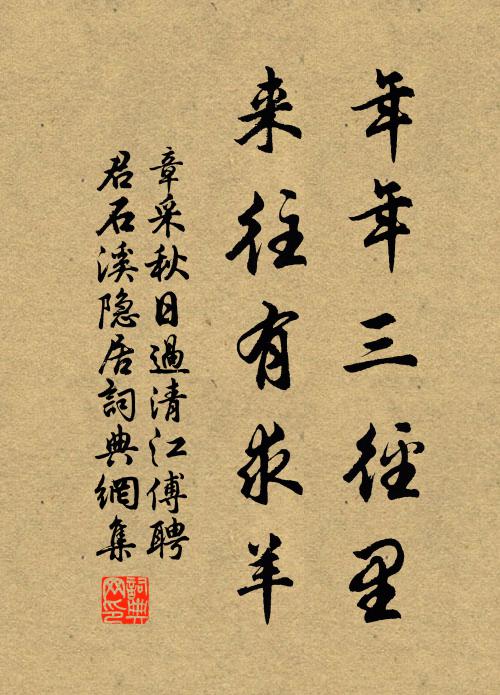 年年三徑里
来往有求羊
章采秋日過清江傅聘
君石溪隐居詞典網集
詞典
网印